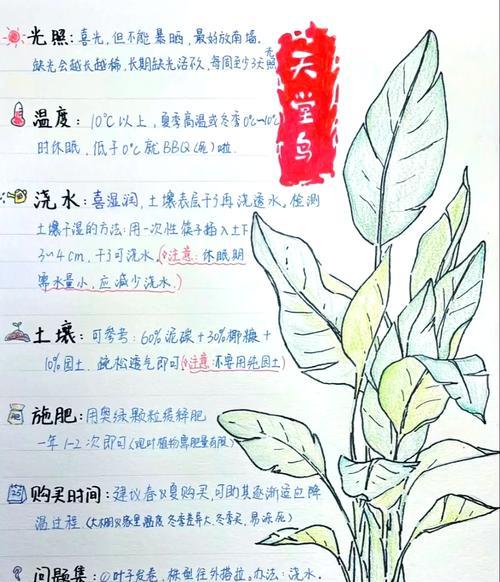 光照：喜光，但不能暴晒，最好放南墙。
缺光会越长越稀，长期缺光活不久，每周至少3天光照
天堂鸟
温度：10℃以上，夏季高温或冬季0℃~10℃
时休眠，低于0℃就BBQ(死)啦.
浇水：喜湿润，土壤表层干了再浇透水，检测
土壤干湿的方法：用一次性筷子插入土下
3~4cm，干了可浇水.(注意：休眠期
需水量小，应减少浇水.)
土壤：可参考：60%泥碳+30%椰糠+
10%园土，疏松透气即可(注意：不要用纯园土)
施肥：用奥绿颗粒缓释肥
一年1-2次即可(观叶植物需肥量有限)
购买时间：建议春夏购买，可助其逐渐适应降
温过程(大棚家里温度冬季差异大，冬季买，易冻死)
? 问题集：①叶子发卷，株型往外撘拉。办法：浇水.